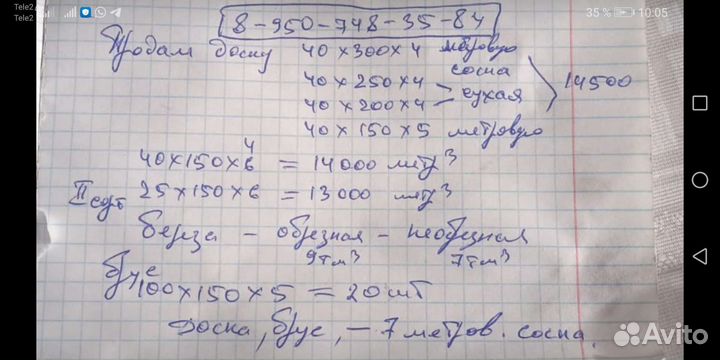 Tele2
Tele2
35 % 10:05
8-950-748-35-84
Продам доску 40 x 300 x 4 метровую
сосна
40 x 250 x 4
сухая
14500
40 x 200 x 4
40 x 150 x 5 метровую
4
40 x 150 x 6 = 14000 метр³
II сорт 25 x 150 x 6 = 13000 метр³
берза - обрезная - необрезная
9 т м³ 7 т м³
брус
100 x 150 x 5 = 20 шт
доска, брус, - 7 метров. сосна.
Avito